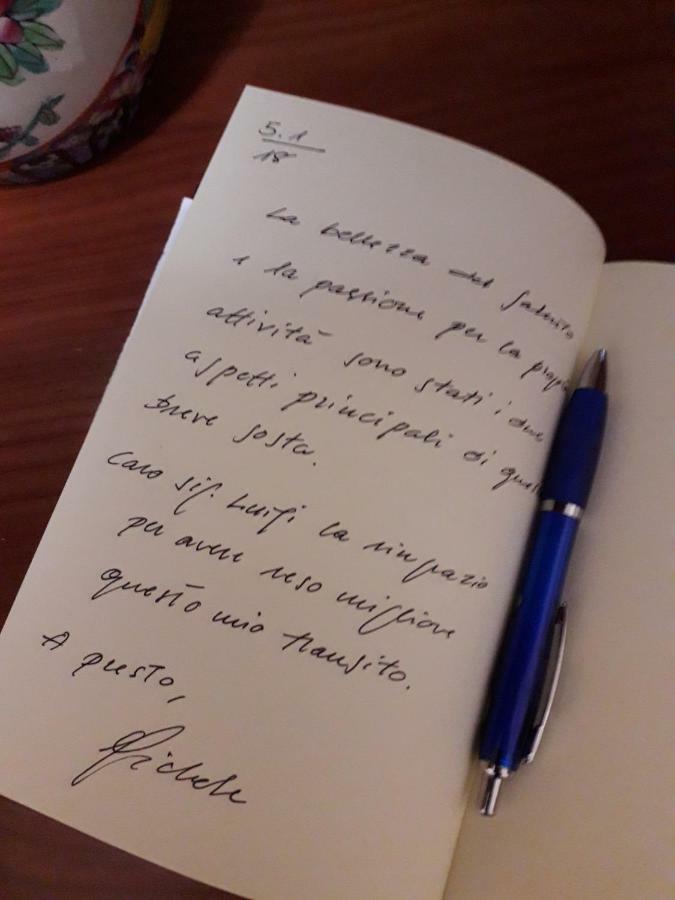 5.1
18
La bellezza del Salento
e la passione per la propria
attività sono stati i due
aspetti principali di questa
breve sosta.
Caro sig. Luigi la ringrazio
per avere reso migliore
questo mio transito.
A presto,
Michele